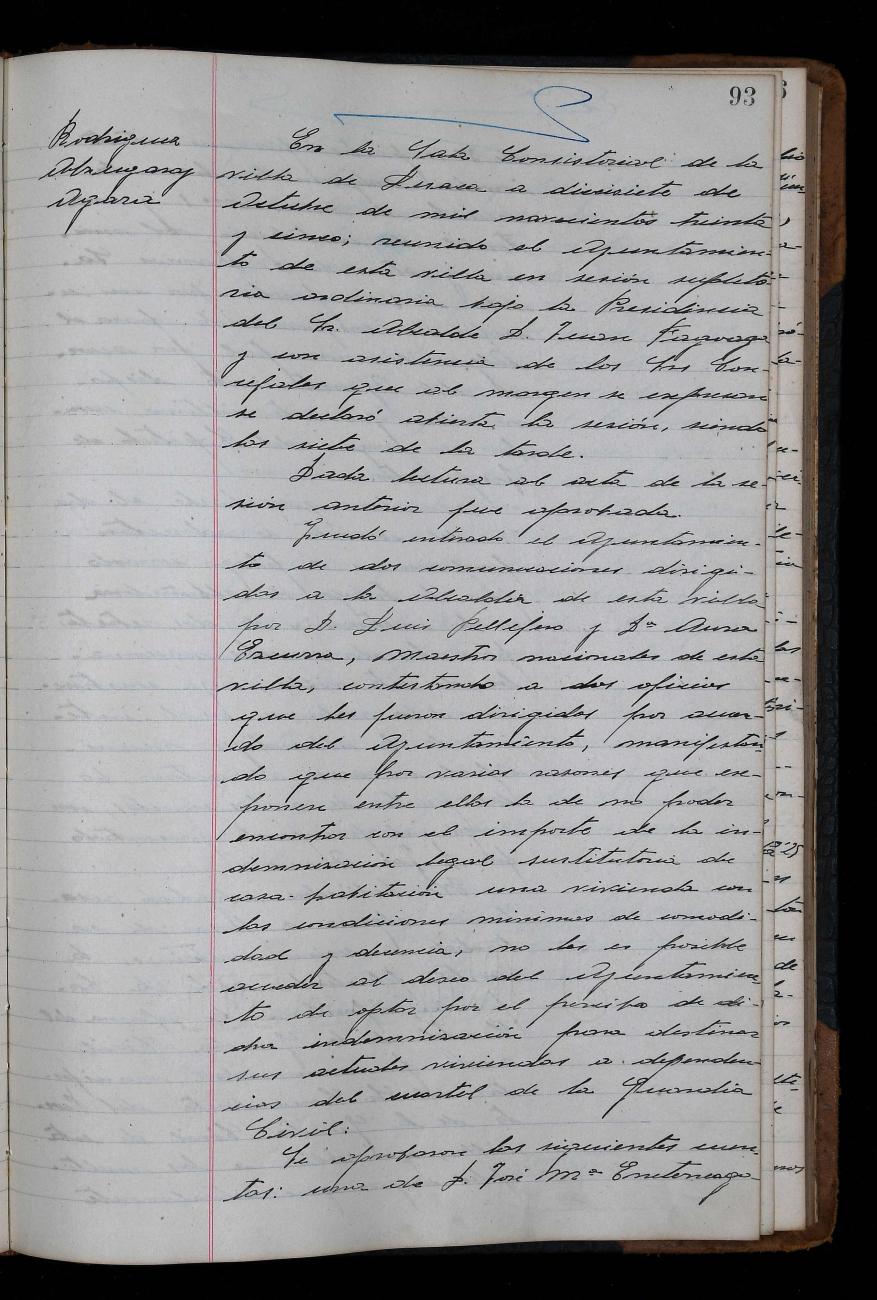 93
Rodriguez
Alzugaray
Agara
En la Sala Consistorial de la
villa de Lesaca a diecisiete de
Octubre de mil novecientos treinta
y cinco; reunido el Ayuntamien-
to de esta villa en sesión supleto-
ria ordinaria bajo la Presidencia
del Sr. Alcalde D. Juan Fagoaga
y con asistencia de los Srs Con-
cejales que al margen se expresan
se declaró abierta la sesión, siendo
las siete de la tarde.
Dada lectura al acta de la se-
sión anterior fue aprobada.
Quedó enterado el Ayuntamien-
to de dos comunicaciones dirigi-
das a la Alcaldía de esta villa
por D. Luis Pellejero y Dª Aurea
Ezcurra, Maestros nacionales de esta
villa, contestando a dos oficios
que les fueron dirigidos por acuer-
do del Ayuntamiento, manifestan-
do que por varias razones que ex-
ponen entre ellas la de no poder
encontrar con el importe de la in-
demnización legal sustitutoria de
casa-habitación una vivienda con
las condiciones mínimas de comodi-
dad y decencia, no les es posible
acceder al deseo del Ayuntamien-
to de optar por el percibo de di-
cha indemnización para destinar
sus actuales viviendas a dependen-
cias del cuartel de la Guardia
Civil.
Se aprobaron las siguientes cuen-
tas: una de D. José Mª